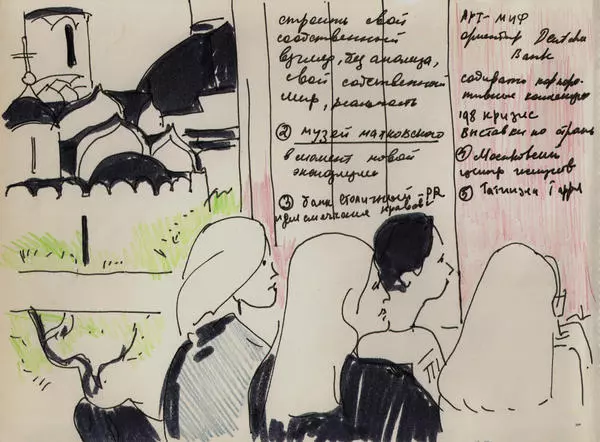 строить свой
собственный
взгляд, без аналица,
свой собственный
мир, реальность
② музей маяковского
в момент новой
экспозиции
③ банк столичный - PR
идет смягчение нравов
АРТ-МИФ
ориентир Deutche
Bank
собирать корпора-
тивные коллекции
198 кризис
выставки по стране
④ Московский
центр искусств
⑤ Татьяна